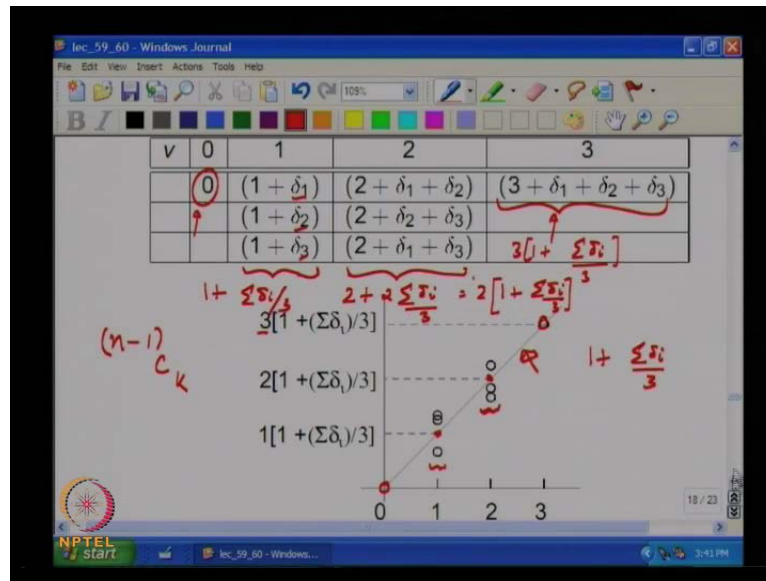 lec_59_60 - Windows Journal
File Edit View Insert Actions Tools Help
109%
B I
v 0 1 2 3
0 (1 + δ₁) (2 + δ₁ + δ₂) (3 + δ₁ + δ₂ + δ₃)
(1 + δ₂) (2 + δ₂ + δ₃)
(1 + δ₃) (2 + δ₁ + δ₃) 3[1 + Σδi/3]
1 + Σδi/3 2 + 2 Σδi/3 = 2[1 + Σδi/3]
3[1 +(Σδᵢ)/3]
(n-1)
C
K
2[1 +(Σδᵢ)/3]
1 + Σδi/3
1[1 +(Σδᵢ)/3]
0 1 2 3
18 / 23
NPTEL
start lec_59_60 - Windows... 3:41 PM